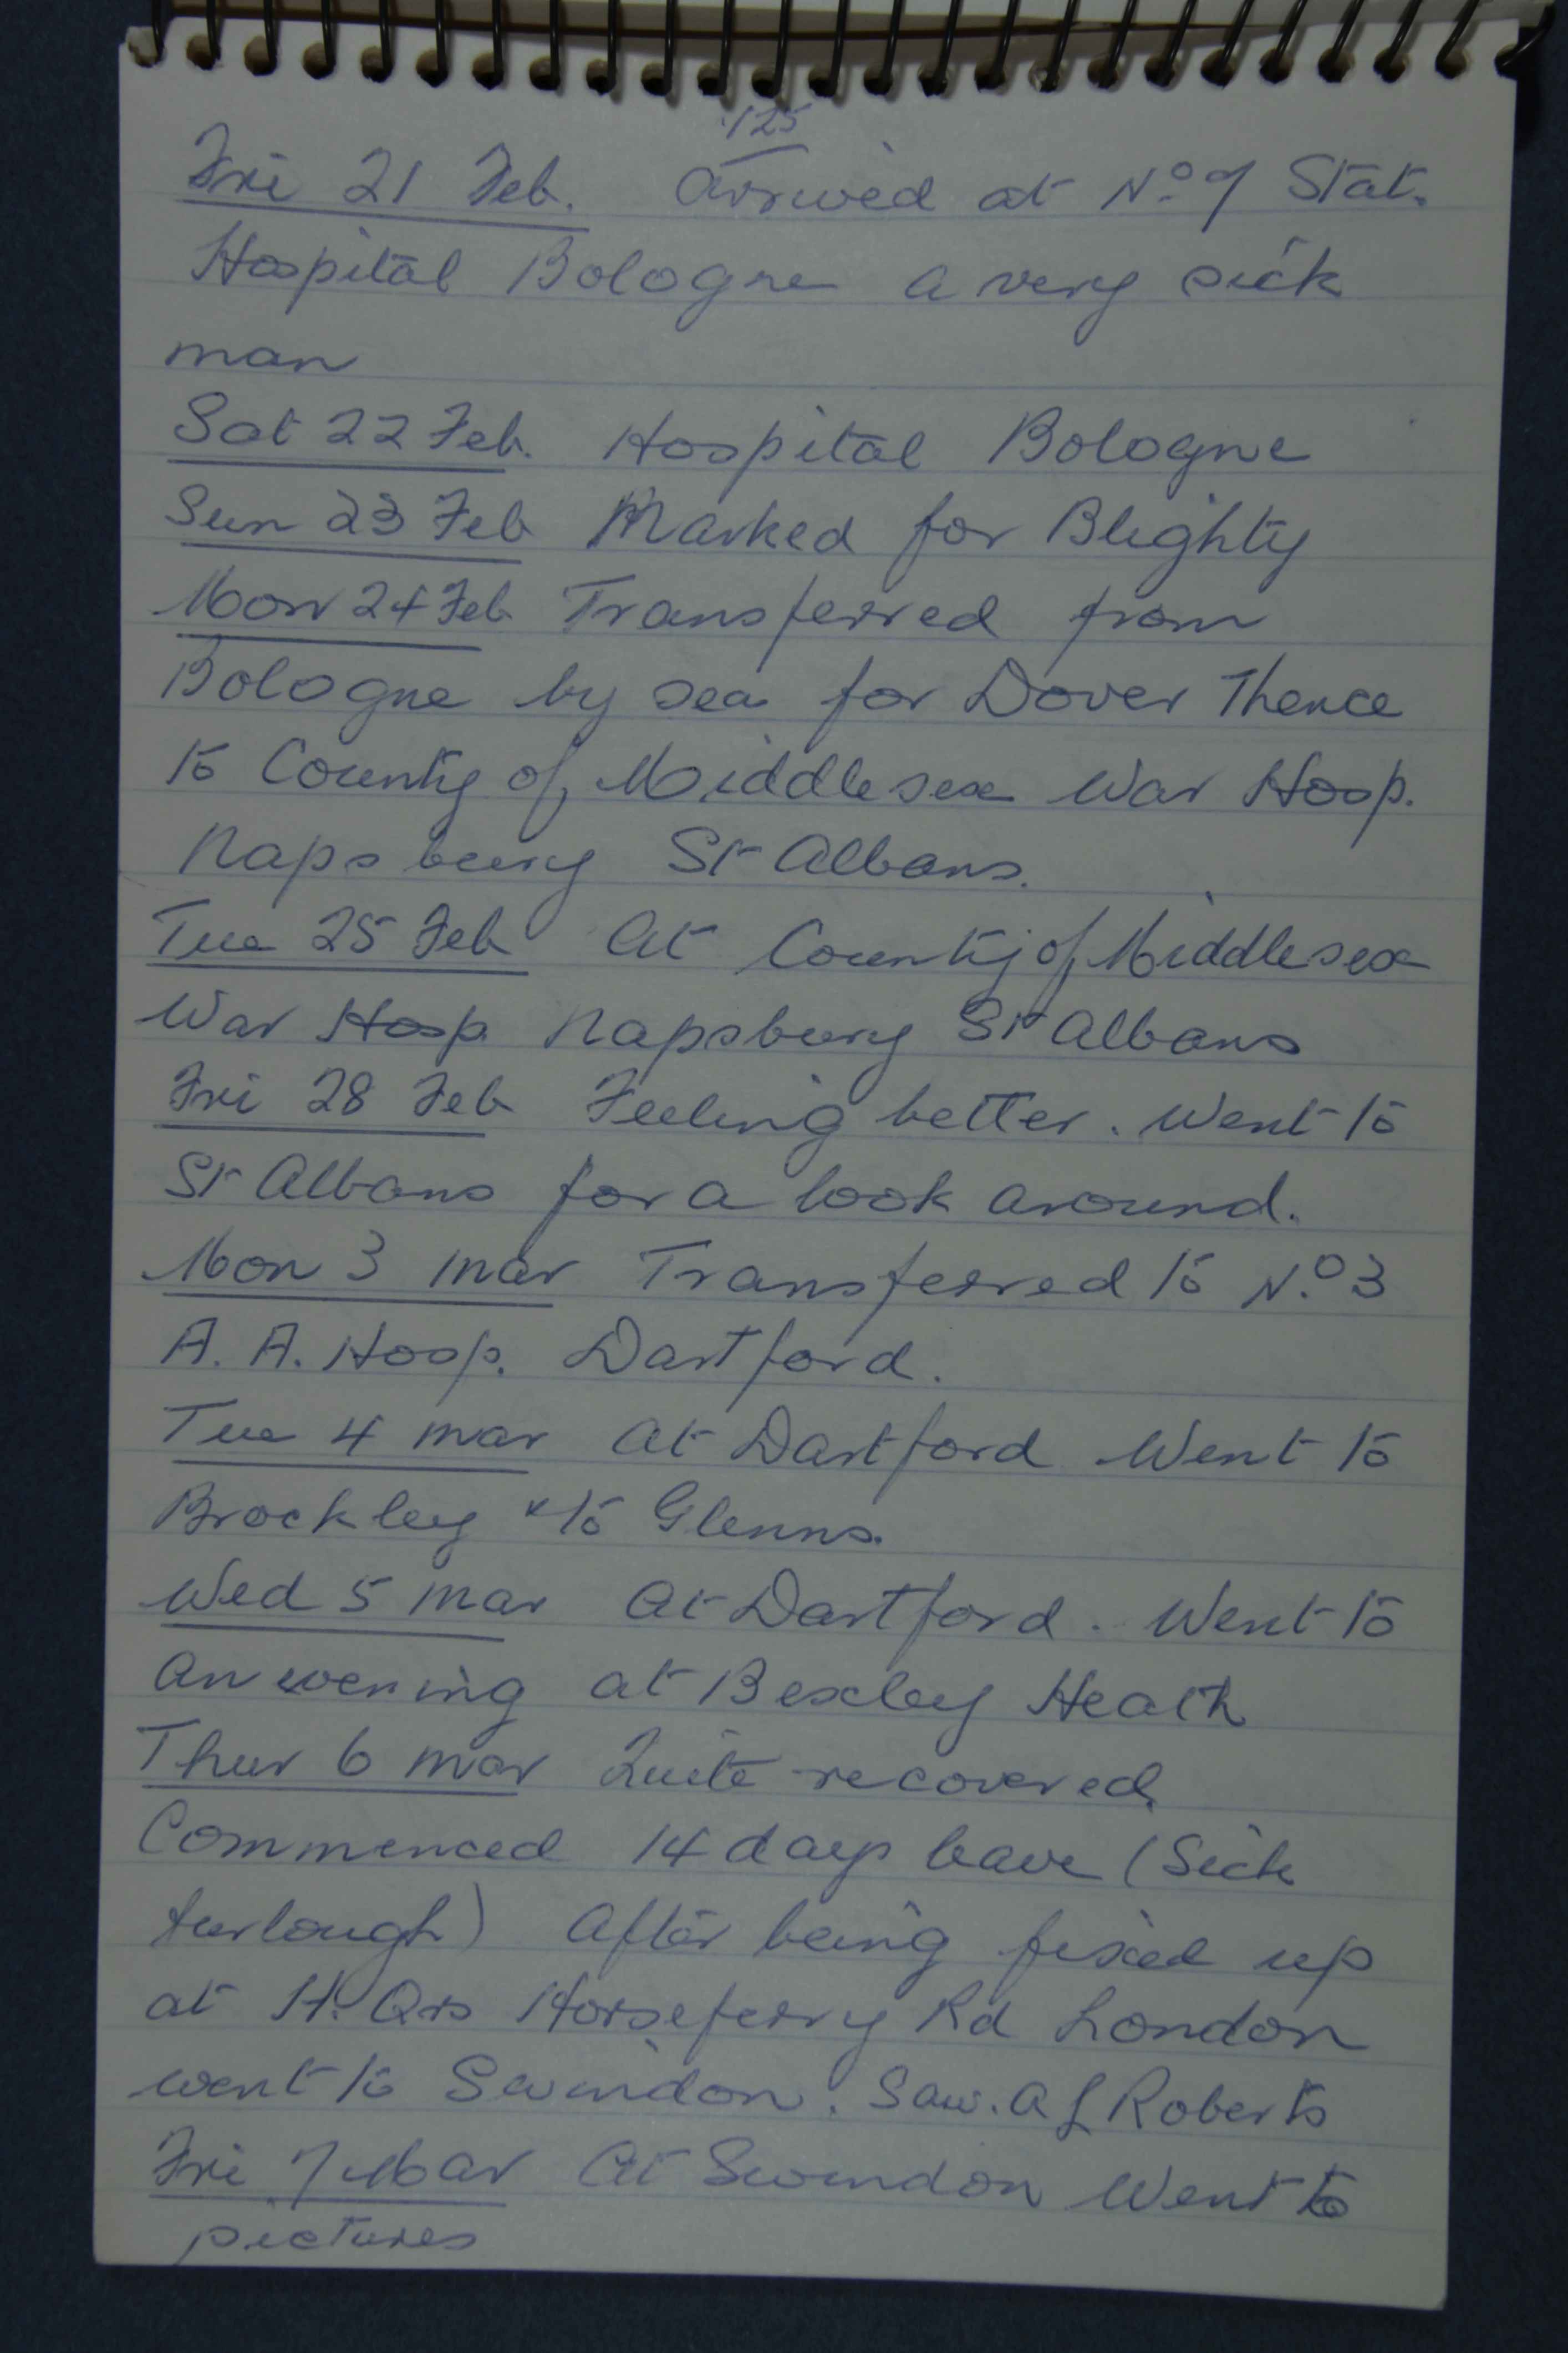 125
Fri 21 Feb. Arrived at No. 7 Stat.
Hospital Bologne a very sick
man
Sat 22 Feb. Hospital Bologne
Sun 23 Feb Marked for Blighty
Mon 24 Feb Transferred from
Bologne by sea for Dover Thence
to County of Middlesex War Hosp.
Napsbury St Albans.
Tue 25 Feb At County of Middlesex
War Hosp. Napsbury St Albans
Fri 28 Feb Feeling better. Went to
St Albans for a look around.
Mon 3 Mar Transferred to No. 3
A. A. Hosp. Dartford.
Tue 4 Mar At Dartford Went to
Brockley & to Glenns.
Wed 5 Mar At Dartford. Went to
an evening at Bexley Heath
Thur 6 Mar Quite recovered.
Commenced 14 days leave (Sick
furlough) After being fixed up
at H. Qrs Horseferry Rd London
went to Swindon. Saw. A L Roberts
Fri 7 Mar At Swindon Went to
pictures